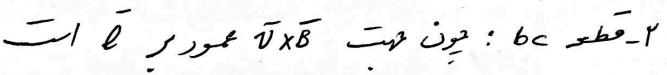 ۲- قطعه bc : چون جهت V̄×B̄ عمود بر ℓ̄ است